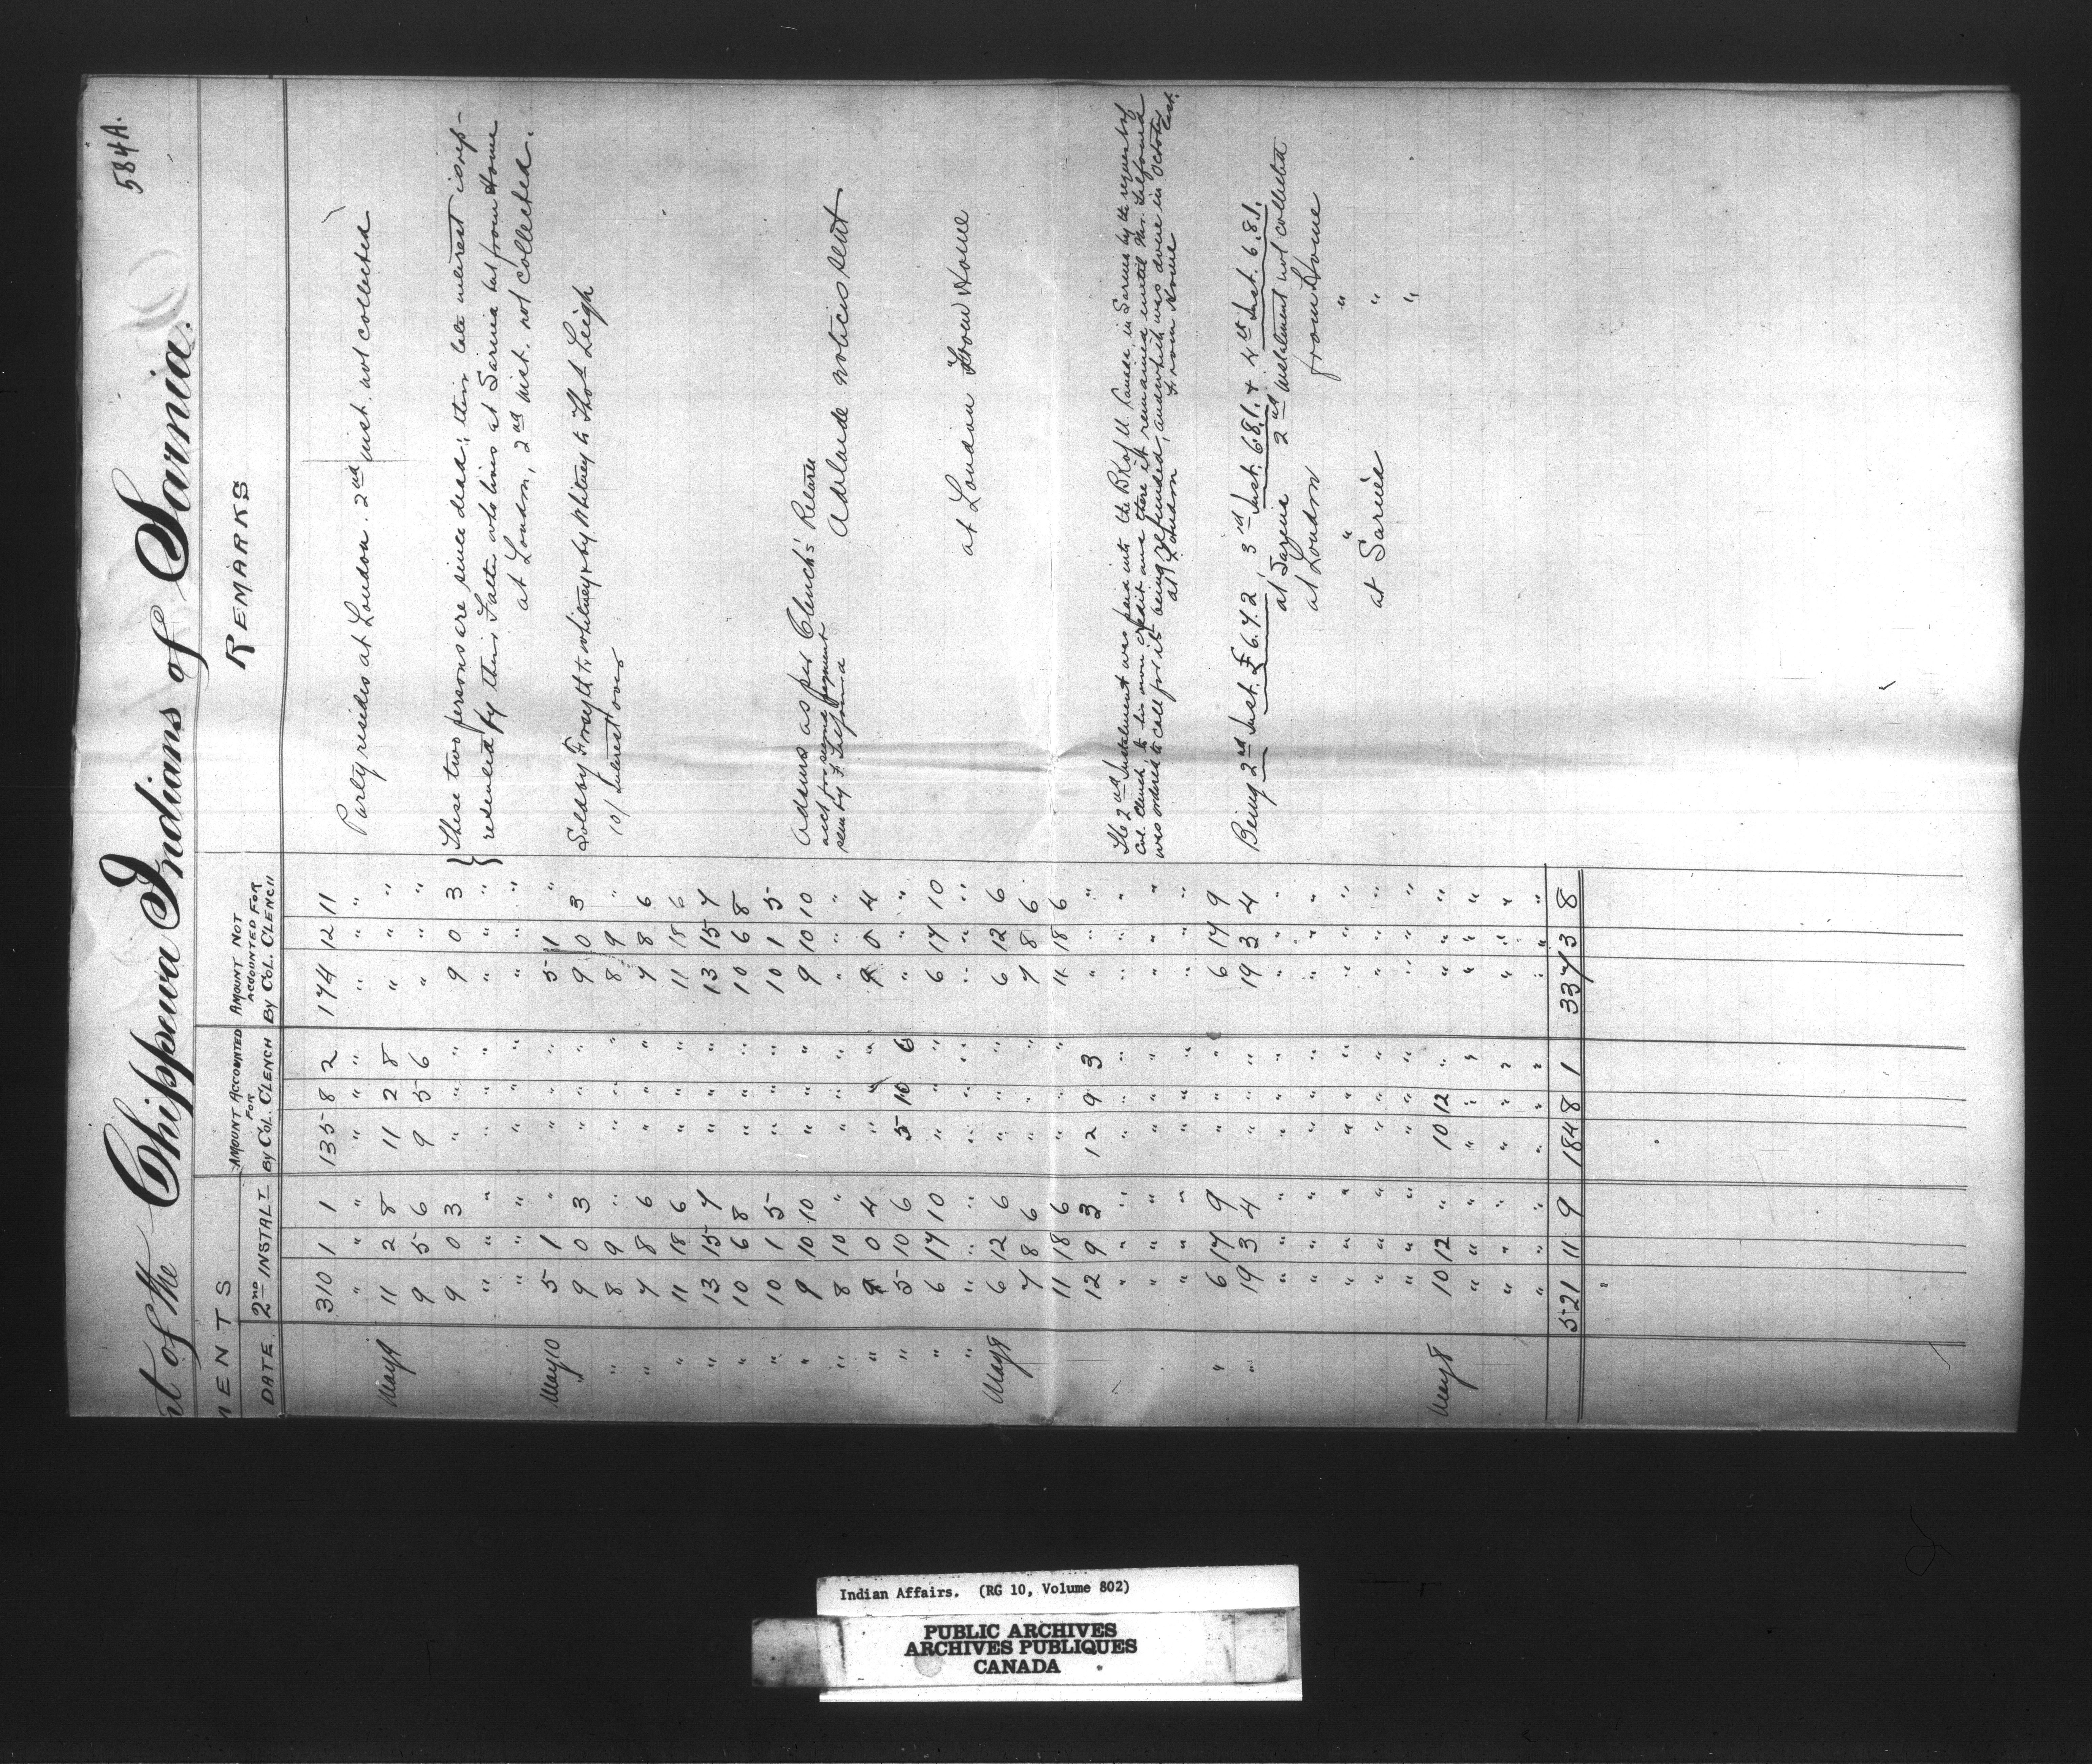 584A.
nt of the Chippewa Indians of Sarnia.
MENTS
AMOUNT ACCOUNTED FOR By COL. CLENCH
AMOUNT NOT ACCOUNTED FOR By COL. CLENCH
REMARKS
DATE 2nd INSTALT
310 1 1 135 8 2 174 12 11
" " " " " " " " " Party resides at London. 2nd inst. not collected
May 9 11 2 8 11 2 8 " " "
9 5 6 9 5 6 " " "
9 0 3 " " " 9 0 3 These two persons are since dead; their late interest is rep-
" " " " " " " " " resented by their Father who lives at Sarnia but from Home
" " " " " " " " " at London, 2nd inst. not collected.
May 10 5 1 " " " " 5 1 "
" 9 0 3 " " " 9 0 3 Sold by Forsyth to Whitney & by Whitney to Thos Leigh
" 8 9 " " " " 8 9 " 10/ Interest over
" 7 8 6 " " " 7 8 6
" 11 18 6 " " " 11 18 6
" 13 15 7 " " " 13 15 7
" 10 6 8 " " " 10 6 8
" 10 1 5 " " " 10 1 5
" 9 10 10 " " " 9 10 10 Adams as per Clench's Return
" 8 10 " " " " " " " Adelaide notices sent
" 9 0 4 " " " 9 0 4
" 5 10 6 5 10 6 " " "
" 6 17 10 " " " 6 17 10
" " " " " " " " " "
May 9 6 12 6 " " " 6 12 6 at London From Home
7 8 6 " " " 7 8 6
11 18 6 " " " 11 18 6
12 9 3 12 9 3 " " "
" " " " " " " " " The 2nd Instalment was paid into the Bk of U. Canada in Sarnia by the request of
" " " " " " " " " Col. Clench to his own credit and there it remained until Mr. Talfourd
" " " " " " " " " was ordered to call for its being refunded, and which was done in October last.
at London From Home
" 6 17 9 " " " 6 17 9
" 19 3 4 " " " 19 3 4 Being 2nd Inst. £6.7.2, 3rd Inst. 6.8.1. & 4th Inst. 6.8.1.
" " " " " " " " " at 2nd instalment not collected
" " " " " " " " " at London from Home
" " " " " " " " " " "
" " " " " " " " " at Sarnia "
" " " " " " " " " "
May 8 10 12 " 10 12 " " " "
" " " " " " " " "
" " " " " " " " "
" " " " " " " " "
521 11 9 184 8 1 337 3 8
Indian Affairs. (RG 10, Volume 802)
PUBLIC ARCHIVES
ARCHIVES PUBLIQUES
CANADA